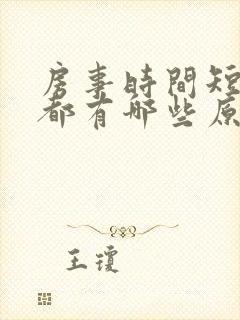 房事時間短
都有哪些原
王瓊